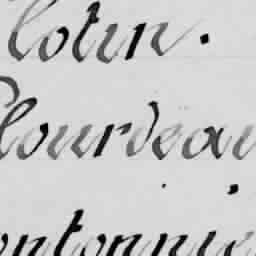 lotin.
lourdeau
ontonnie